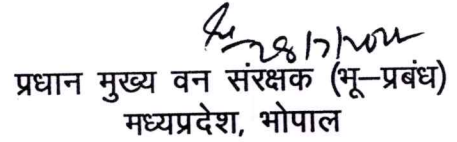 28/7/2022
प्रधान मुख्य वन संरक्षक (भू–प्रबंध)
मध्यप्रदेश, भोपाल